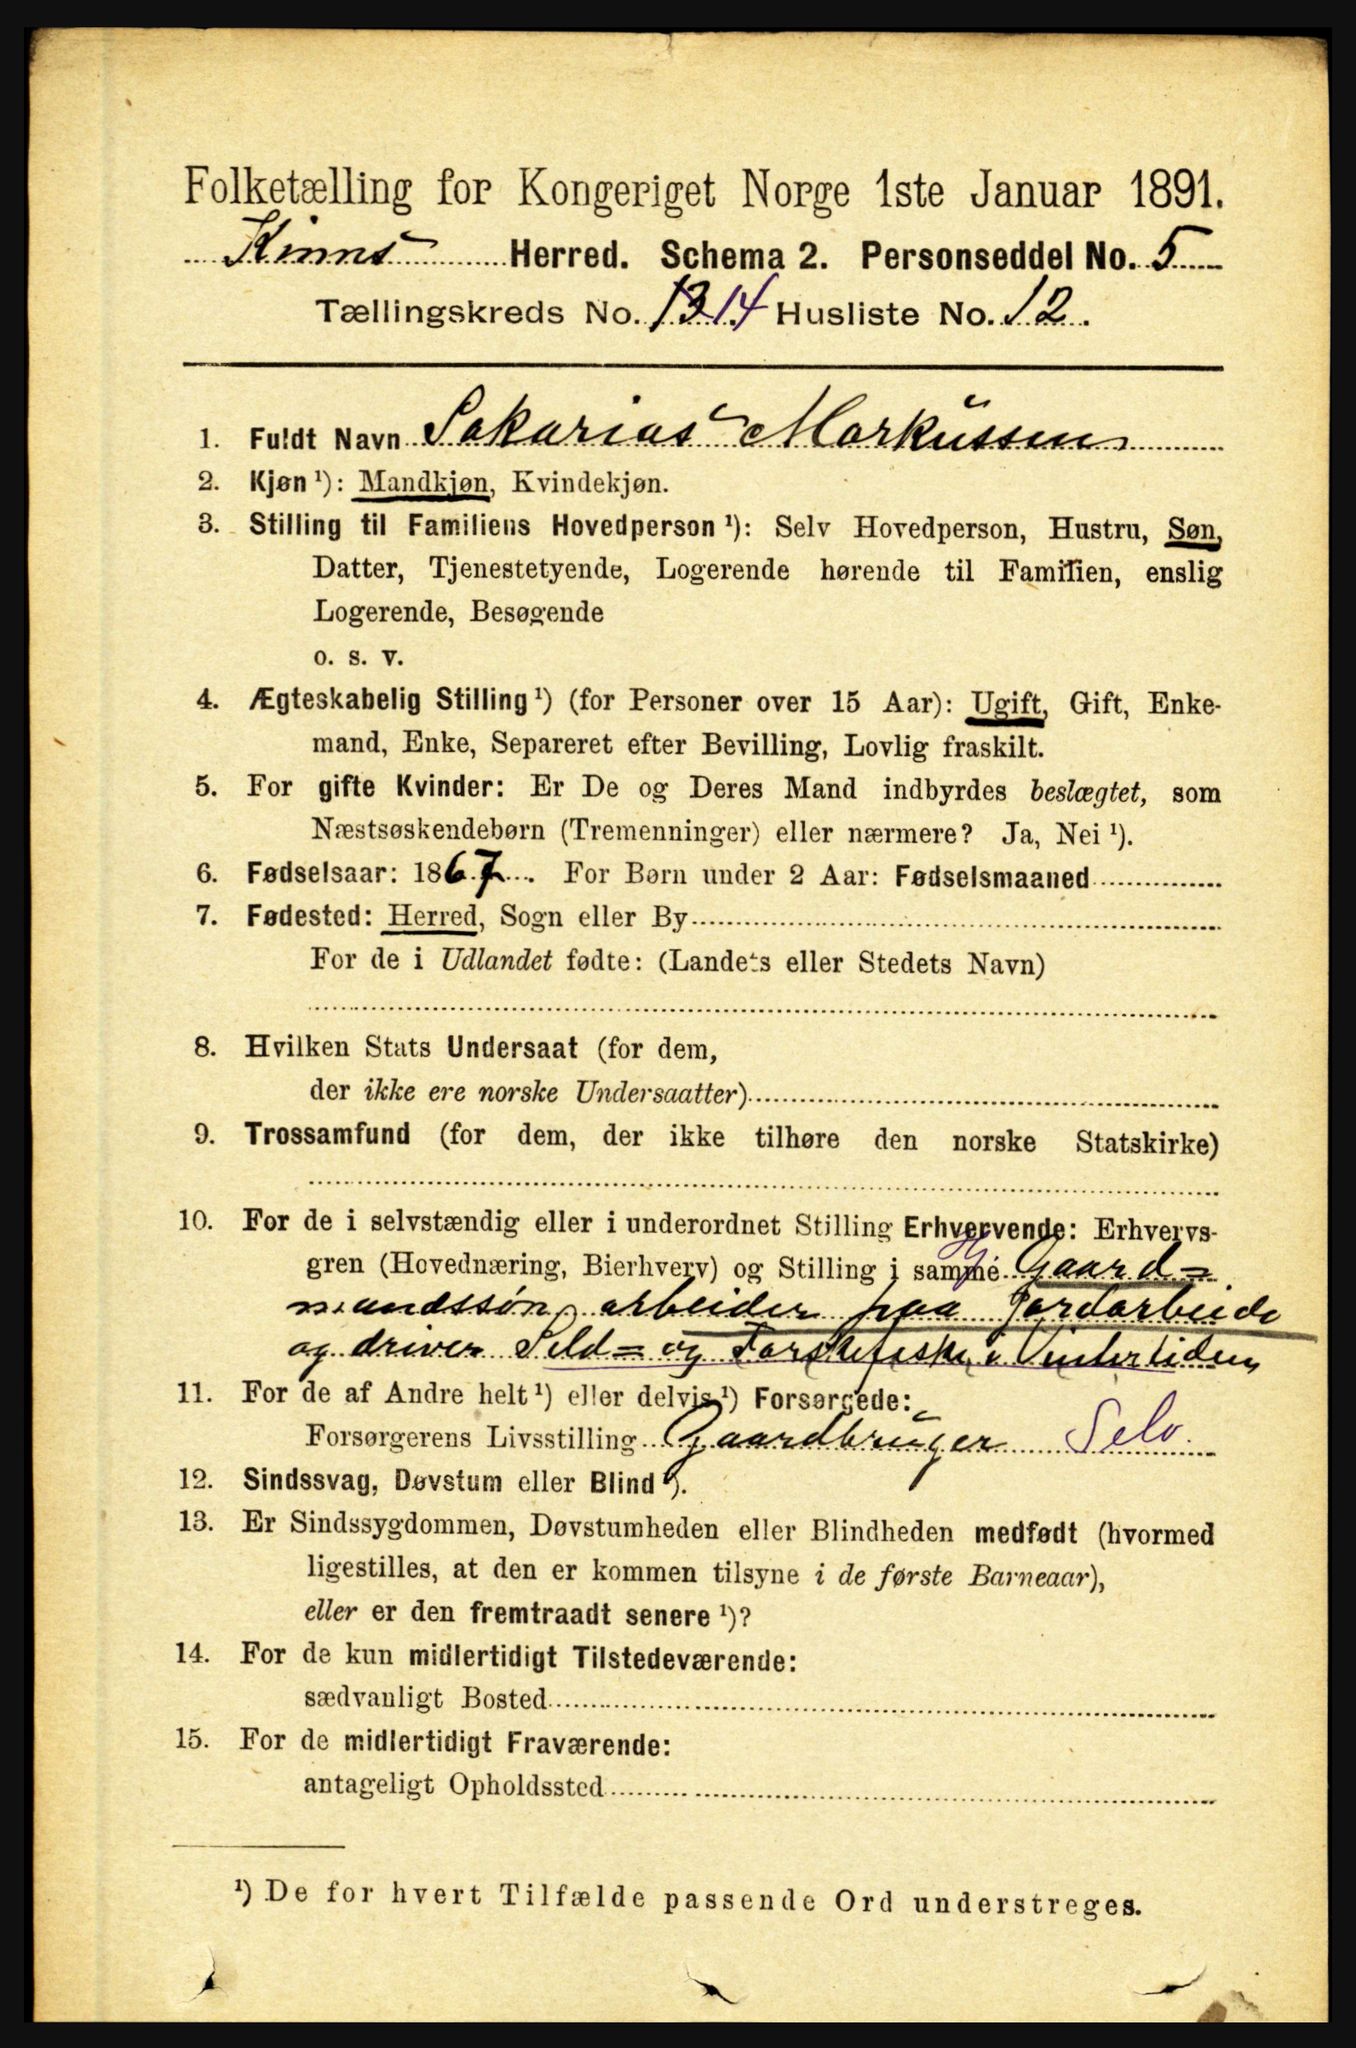 Folketælling for Kongeriget Norge 1ste Januar 1891.
Kinns Herred. Schema 2. Personseddel No. 5
Tællingskreds No. 13 14 Husliste No. 12.
1. Fuldt Navn Sakarias Markussen
2. Kjøn ¹): Mandkjøn, Kvindekjøn.
3. Stilling til Familiens Hovedperson ¹): Selv Hovedperson, Hustru, Søn,
Datter, Tjenestetyende, Logerende hørende til Familien, enslig
Logerende, Besøgende
o. s. v.
4. Ægteskabelig Stilling ¹) (for Personer over 15 Aar): Ugift, Gift, Enke-
mand, Enke, Separeret efter Bevilling, Lovlig fraskilt.
5. For gifte Kvinder: Er De og Deres Mand indbyrdes beslægtet, som
Næstsøskendebørn (Tremenninger) eller nærmere? Ja, Nei ¹).
6. Fødselsaar: 1867. For Børn under 2 Aar: Fødselsmaaned
7. Fødested: Herred, Sogn eller By
For de i Udlandet fødte: (Landets eller Stedets Navn)
8. Hvilken Stats Undersaat (for dem,
der ikke ere norske Undersaatter)
9. Trossamfund (for dem, der ikke tilhøre den norske Statskirke)
10. For de i selvstændig eller i underordnet Stilling Erhvervende: Erhvervs-
gren (Hovednæring, Bierhverv) og Stilling i samme Gaard=
mandssøn, arbeider paa Jordarbeide
og driver Sild= og Torskefiske i Vintertiden
11. For de af Andre helt ¹) eller delvis ¹) Forsørgede:
Forsørgerens Livsstilling Gaardbruger Selv
12. Sindssvag, Døvstum eller Blind ¹).
13. Er Sindssygdommen, Døvstumheden eller Blindheden medfødt (hvormed
ligestilles, at den er kommen tilsyne i de første Barneaar),
eller er den fremtraadt senere ¹)?
14. For de kun midlertidigt Tilstedeværende:
sædvanligt Bosted
15. For de midlertidigt Fraværende:
antageligt Opholdssted
¹) De for hvert Tilfælde passende Ord understreges.